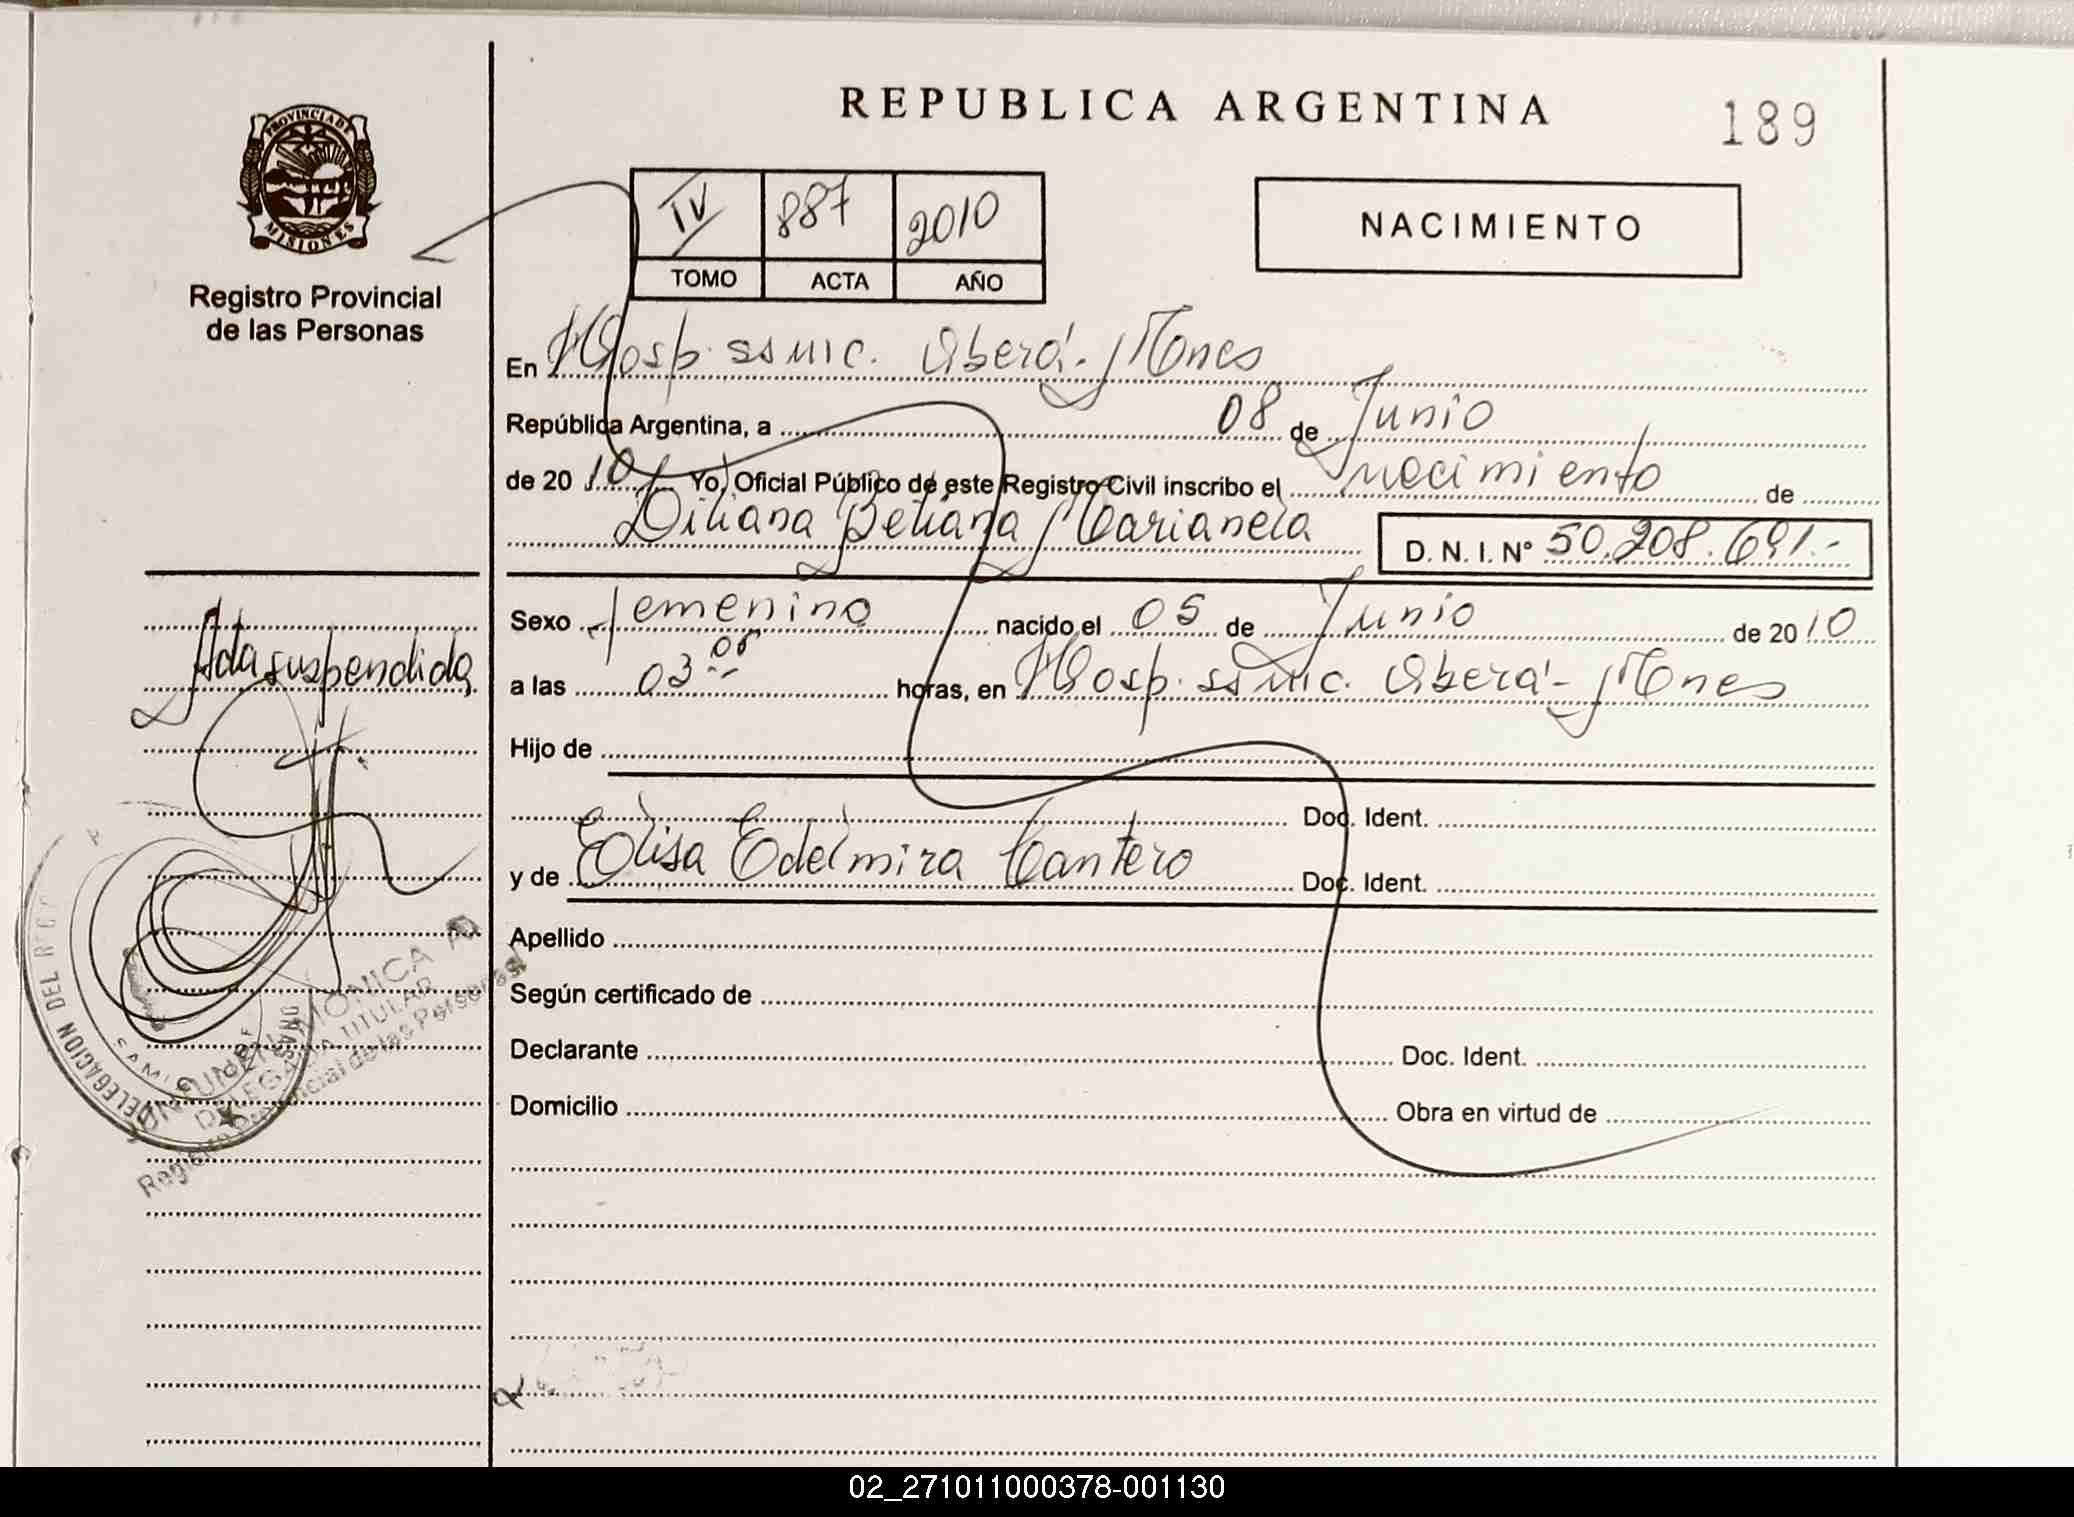 REPUBLICA ARGENTINA
189
PROVINCIA DE
MISIONES
Registro Provincial
de las Personas
IV 887 2010
TOMO ACTA AÑO
NACIMIENTO
En Hosp. ssmic. Oberá - Mnes
República Argentina, a 08 de Junio
de 20 10 Yo, Oficial Público de este Registro Civil inscribo el nacimiento de
Marianela
D. N. I. Nº 50.208.691.-
Sexo femenino nacido el 05 de Junio de 20 10
a las 03 horas, en Hosp. ssmic. Oberá - Mnes
Hijo de
Doc. Ident.
y de Elisa Edelmira Cantero Doc. Ident.
Apellido
Según certificado de
Declarante Doc. Ident.
Domicilio Obra en virtud de
Acta suspendida
DELEGACION DEL
MONICA
DELEGADA TITULAR
Registro Provincial de las Personas
02_271011000378-001130